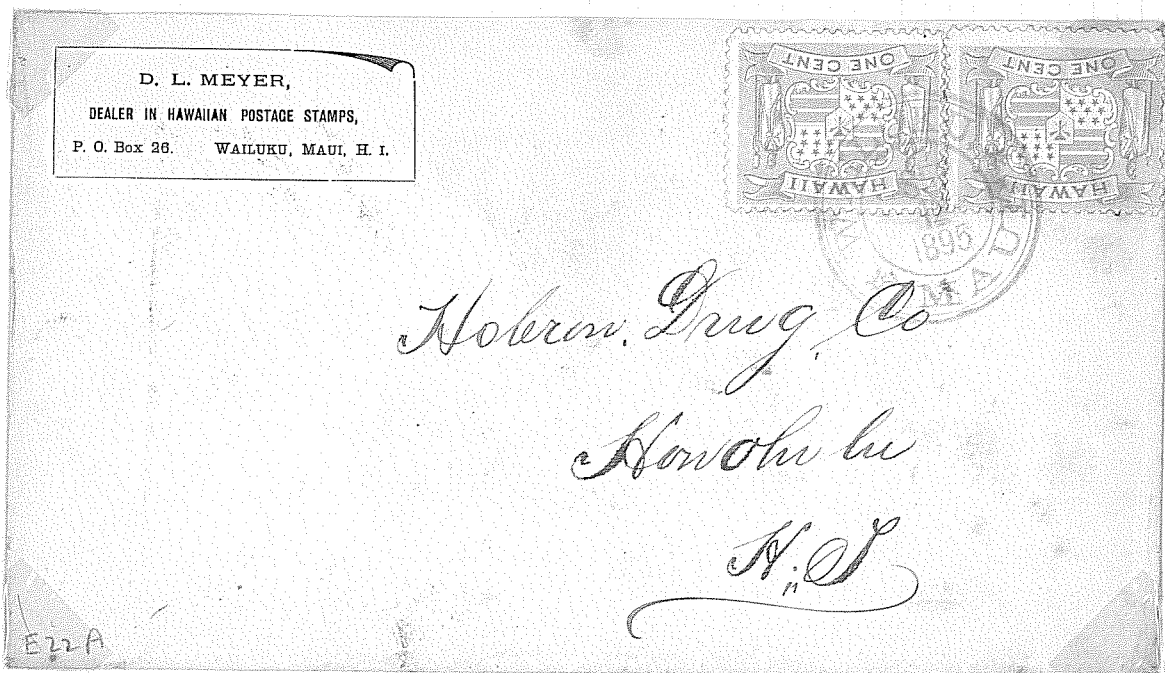 D. L. MEYER,
DEALER IN HAWAIIAN POSTAGE STAMPS,
P. O. Box 26. WAILUKU, MAUI, H. I.
ONE CENT
HAWAII
ONE CENT
HAWAII
1895
MAUI
Hobron. Drug. Co
Honolulu
H. I
E22A